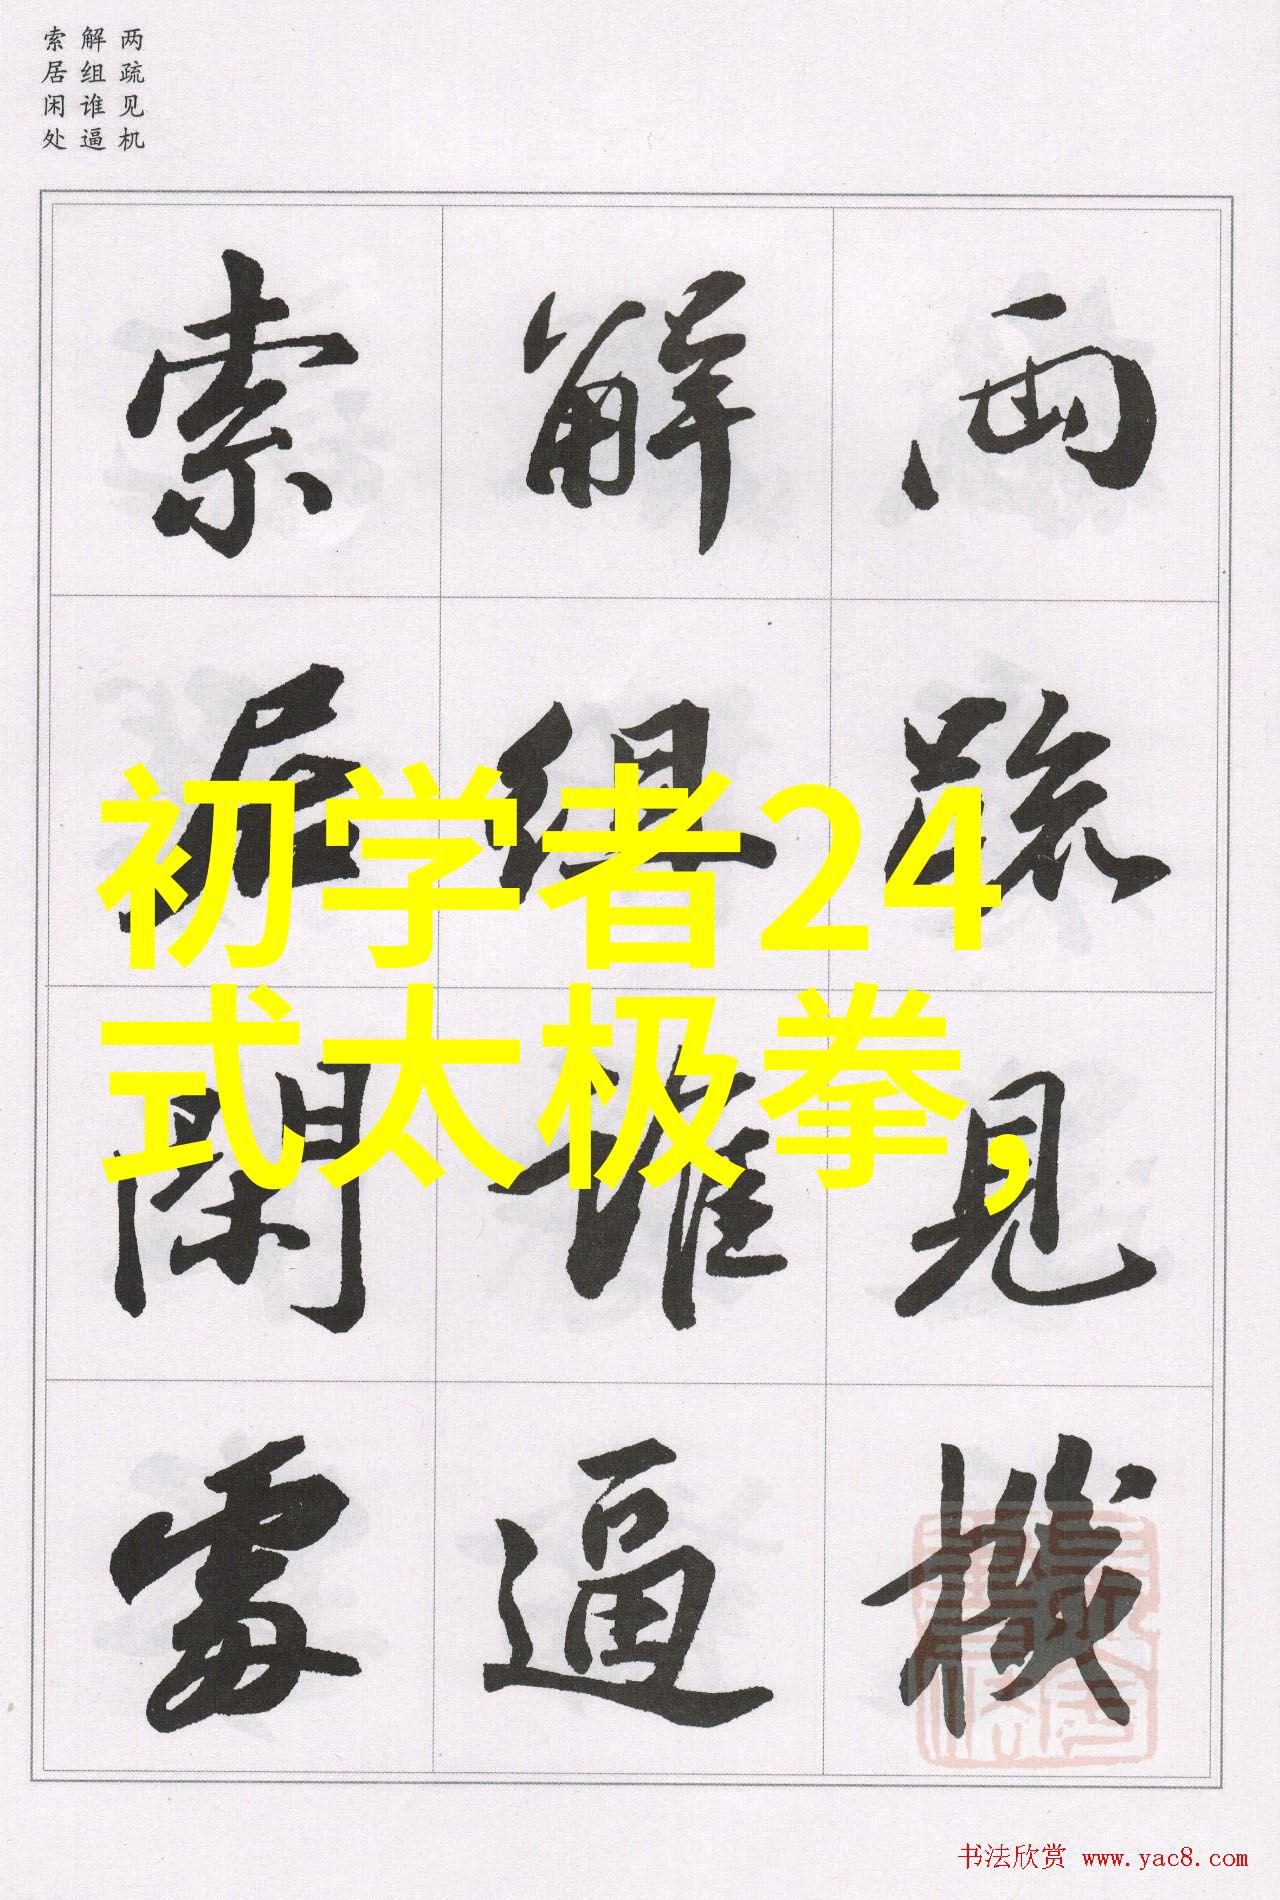 两疏见机
解组谁逼
索居闲处
两疏见機
解组谁逼
索居閑處
初学者24
式太极拳,
书法欣赏 www.yac8.com